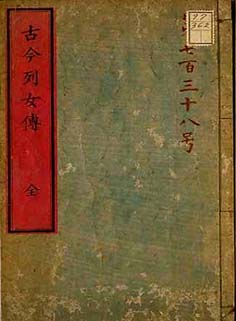 古今列女傳 全
七百三十八号